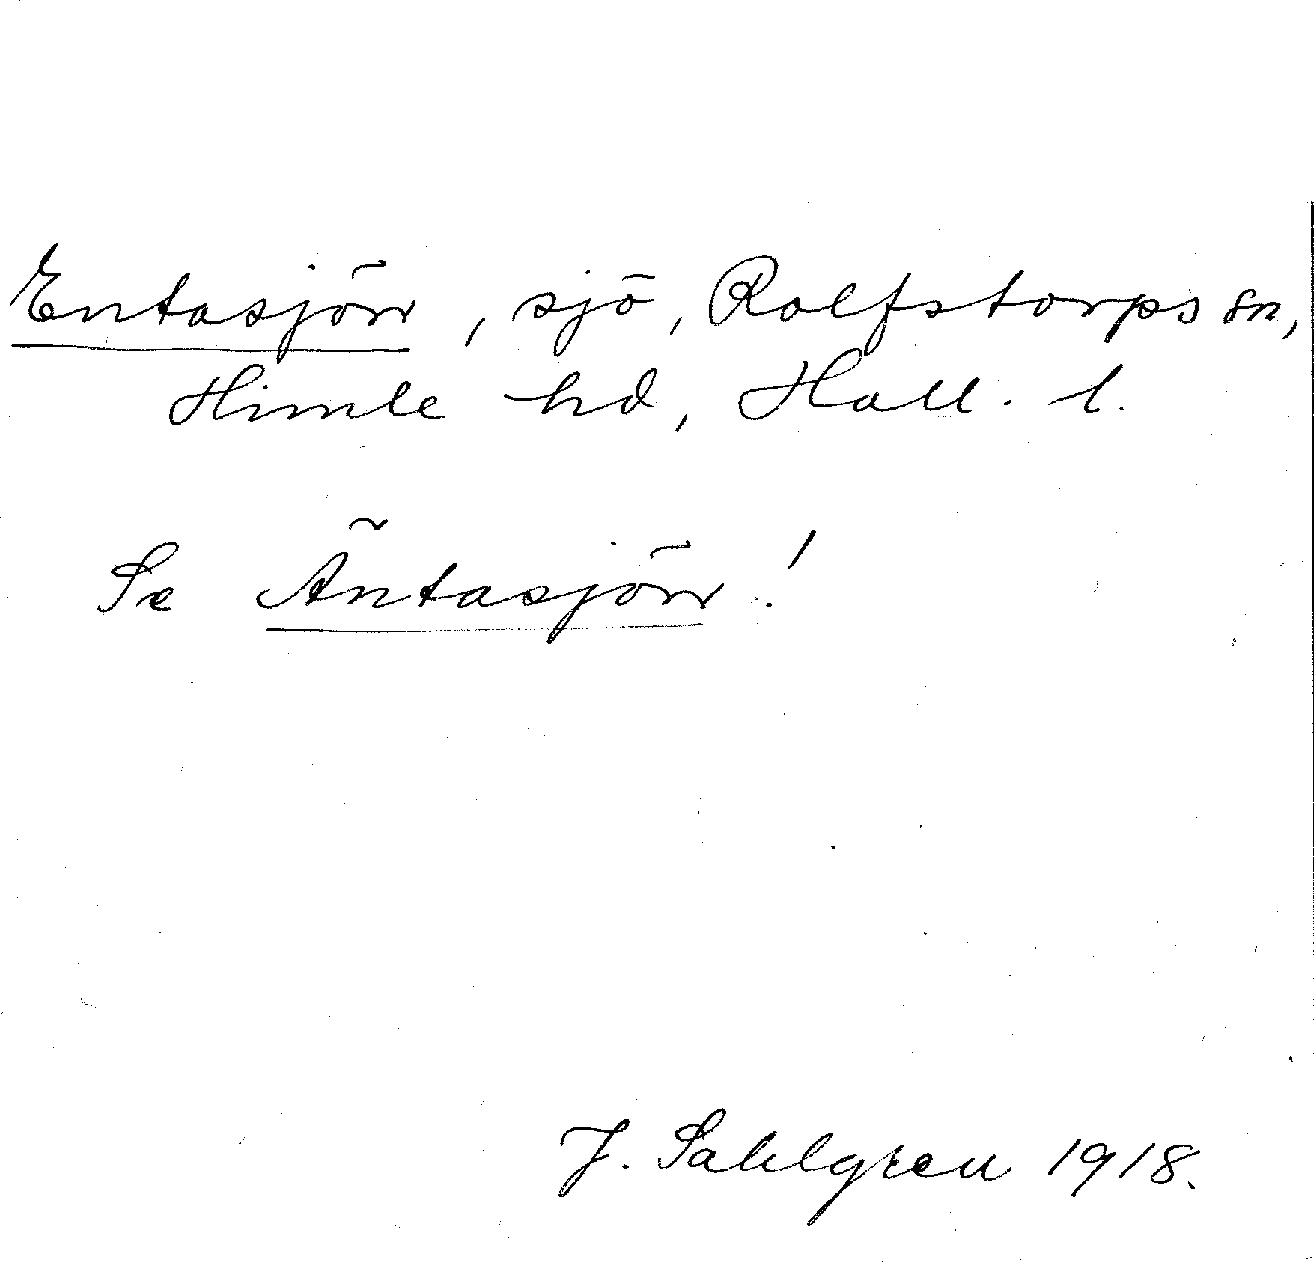 Entasjörr, sjö, Rolfstorps sn,
Himle hd, Hall. l.
Se Äntasjörr!
J. Sahlgren 1918.